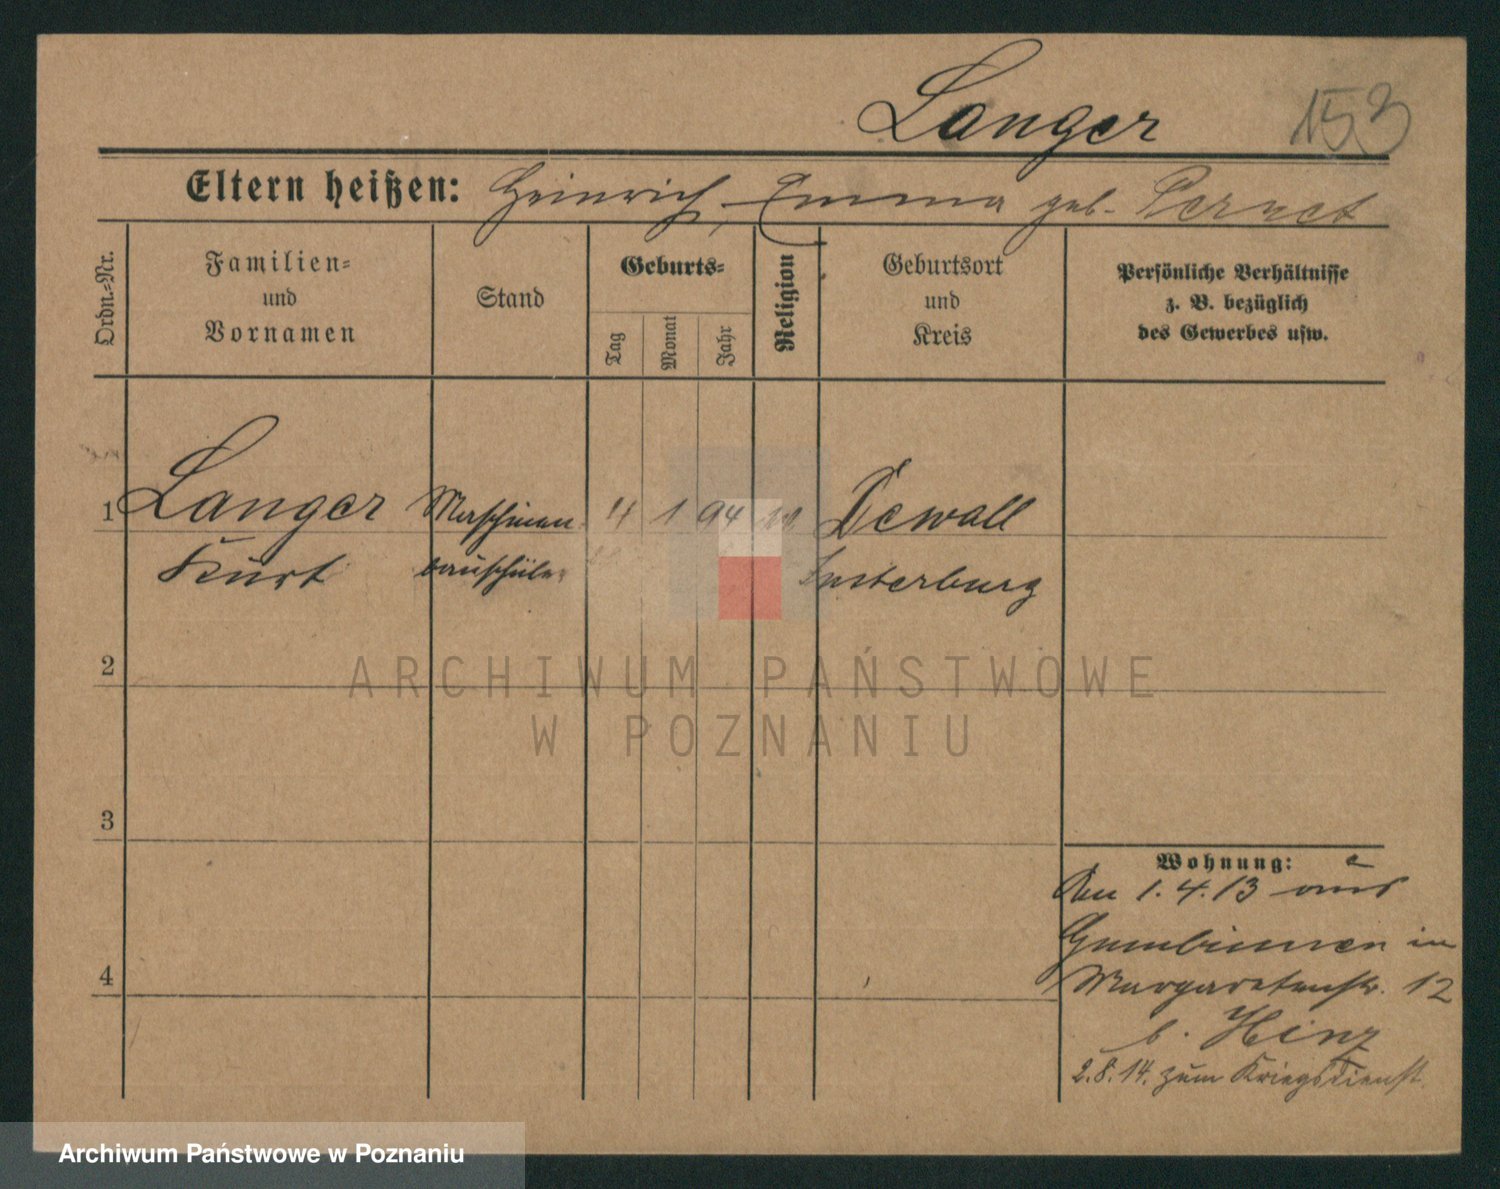 Langer 153
Eltern heißen: Heinrich, Emma geb. Pernet
Ordn.-Nr.
Familien-
und
Vornamen
Stand
Geburts-
Tag
Monat
Jahr
Religion
Geburtsort
und
Kreis
Persönliche Verhältnisse
z. B. bezüglich
des Gewerbes usw.
1 Langer Maschinen 4 1 94 Dewall
Kurt bauschüler Insterburg
2
3
4
Wohnung:
Am 1.4.13 aus
Gumbinnen in
Margaretenstr. 12
b. Hinz
2.8.14. zum Kriegsdienst.
ARCHIWUM PAŃSTWOWE
W POZNANIU
Archiwum Państwowe w Poznaniu